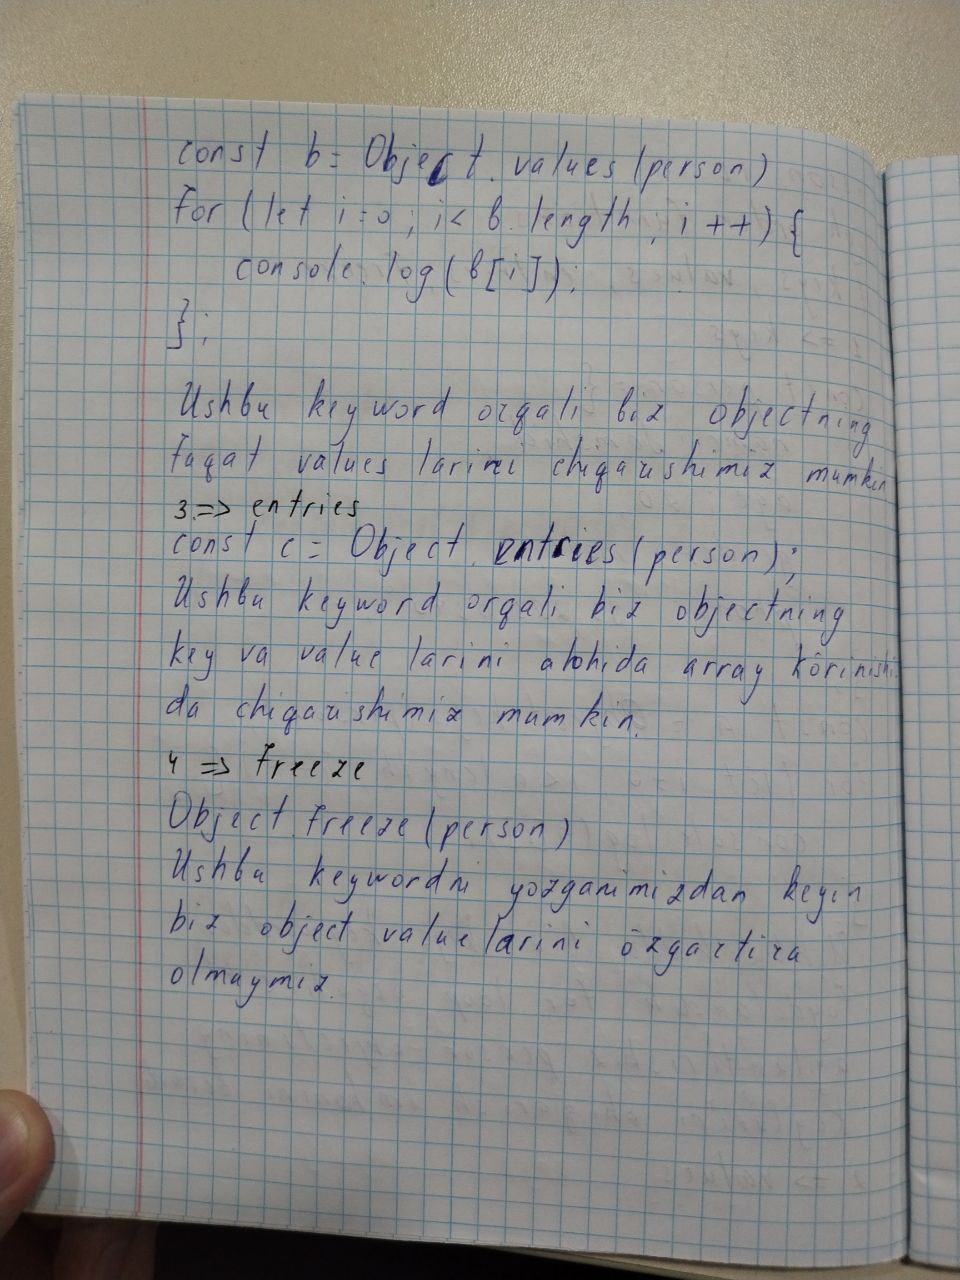 const b = Object.values(person)
for (let i=0; i< b.length, i++) {
console.log(b[i]);
};
Ushbu keyword orqali biz objectning
faqat values larini chiqarishimiz mumkin
3.=> entries
const c = Object.entries(person);
Ushbu keyword orqali biz objectning
key va value larini alohida array körinishi
da chiqarishimiz mumkin.
4 => freeze
Object.freeze(person)
Ushbu keywordni yozganimizdan keyin
biz object value larini özgartira
olmaymiz.